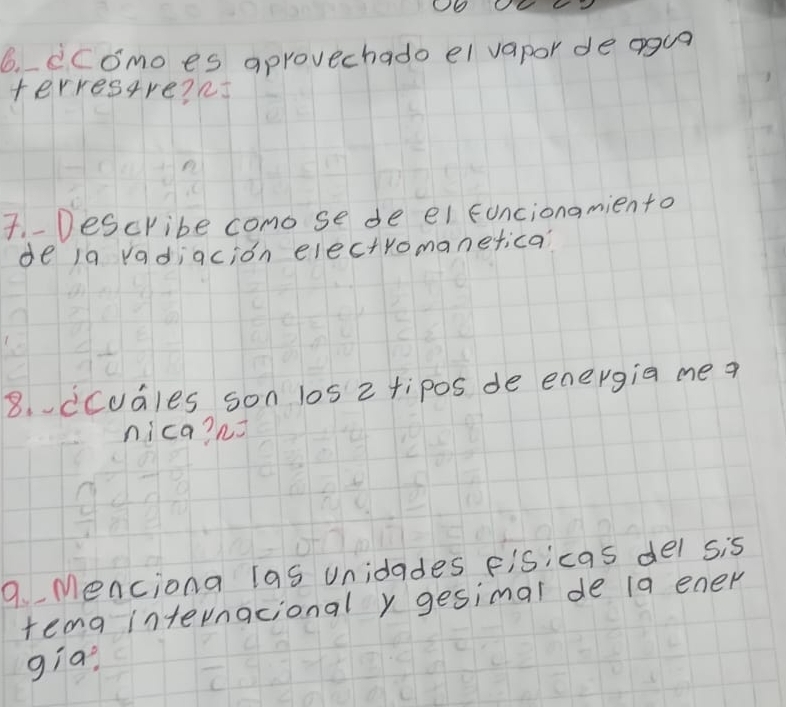 6.- ¿Cómo es aprovechado el vapor de agua
terrestre? R=
7.- Describe como se de el funcionamiento
de la radiación electromanetica:
8.- ¿Cuáles son los 2 tipos de energia me
nica? R=
9.- Menciona las unidades fisicas del sis
tema internacional y gesimal de la ener
gia: